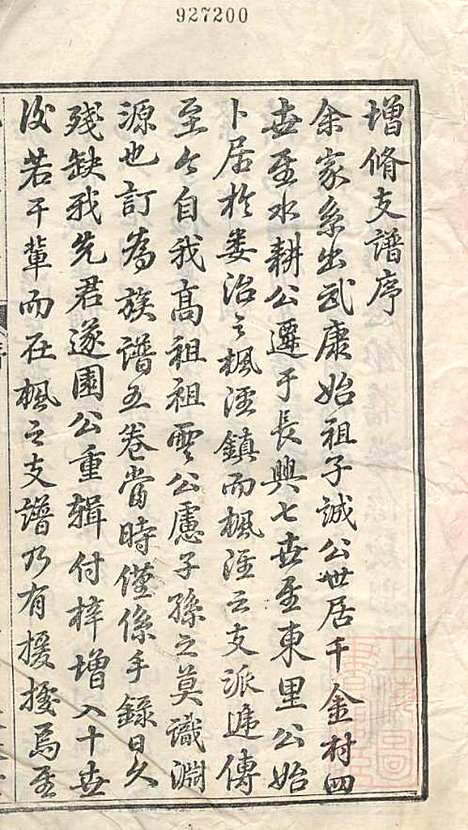 927200
增脩支譜序
余家系出武康始祖子誠公世居千金村四
世至水耕公遷于長興七世至東里公始
卜居於婁治之楓涇鎮而楓涇之支派遞傳
至今自我高祖祖雲公慮子孫之莫識淵
源也訂為族譜五卷當時僅係手錄日久
殘缺我先君遂園公重輯付梓增入十世
後若干輩而在楓之支譜乃有援據焉至